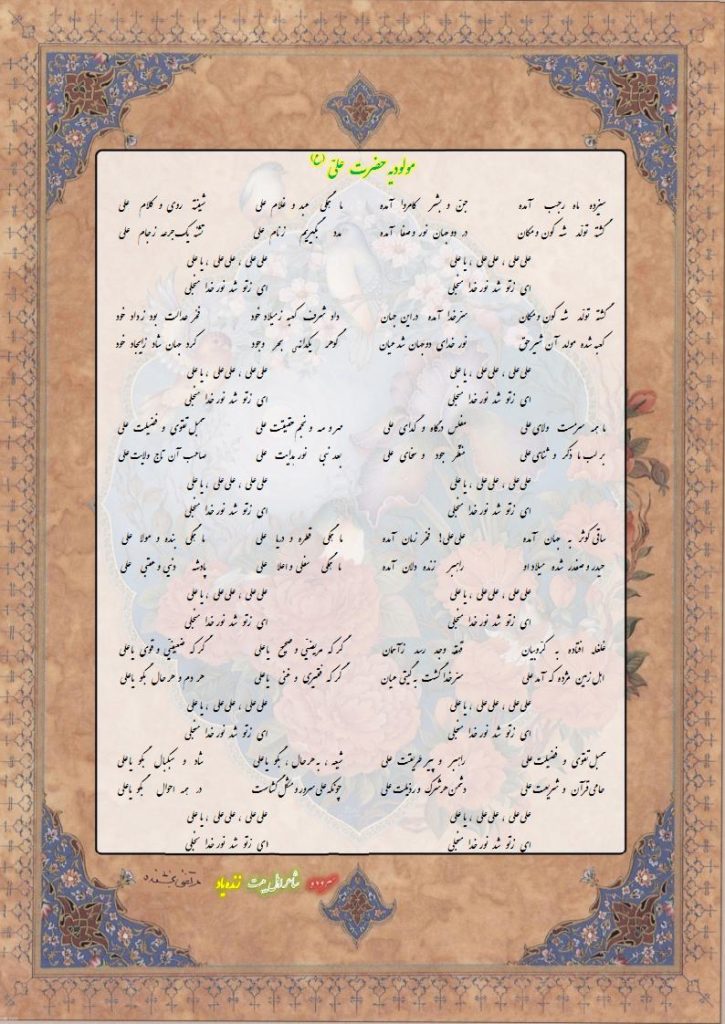 مولودیه حضرت علی (ع)
سیزده ماه رجب آمده جنّ و بشر کامروا آمده ما همگی عبد و غلام علی شیفته روی و کلام علی
گشته تولد شه کون و مکان در دو جهان نور و صفا آمده مدد بگیریم زنام علی تشنه یک جرعه زجام علی
علی علی ، علی علی ، یا علی علی علی ، علی علی ، یا علی
ای زتو شد نور خدا منجلی ای زتو شد نور خدا منجلی
گشته تولد شه کون و مکان سرّ خدا آمده در این جهان داد شرف کعبه زمیلاد خود فخر عدالت بود زداد خود
کعبه شده مولد آن شیر حق نور خدای دو جهان شد عیان گوهر یکدانه‌ی بحر وجود کرد جهان شاد زایجاد خود
علی علی ، علی علی ، یا علی علی علی ، علی علی ، یا علی
ای زتو شد نور خدا منجلی ای زتو شد نور خدا منجلی
ما همه سرمست ولای علی مفلس درگاه و گدای علی مهر و مه و نجم حقیقت علی سمبل تقوی و فضیلت علی
بر لب ما ذکر و ثنای علی منتظر جود و سخای علی بعد نبی نور هدایت علی صاحب آن تاج ولایت علی
علی علی ، علی علی ، یا علی علی علی ، علی علی ، یا علی
ای زتو شد نور خدا منجلی ای زتو شد نور خدا منجلی
ساقی کوثر به جهان آمده علی علی! فخر زمان آمده ما همگی قطره و دریا علی ما همگی بنده و مولا علی
حیدر و صفدر شده میلاد او راهبر زنده دلان آمده ما همگی سفلی و اعلا علی پادشه دنیی و عقبی علی
علی علی ، علی علی ، یا علی علی علی ، علی علی ، یا علی
ای زتو شد نور خدا منجلی ای زتو شد نور خدا منجلی
غلغله افتاده به کروبیان قهقهه وجد رسد زآسمان گر که مریضیّ و صحیح یا علی گر که ضعیفیّ و قوی یا علی
اهل زمین مژده که آمد علی سرّ خدا گشت به گیتی عیان گر که فقیری و غنی یا علی هر دم و هر حال بگو یا علی
علی علی ، علی علی ، یا علی علی علی ، علی علی ، یا علی
ای زتو شد نور خدا منجلی ای زتو شد نور خدا منجلی
سمبل تقوی و فضیلت علی راهبر و پیر طریقت علی شیعه ، به هر حال ، بگو یا علی شاد و سبکبال بگو یا علی
حامی قرآن و شریعت علی دشمن هر شرک و رذیلت علی چونکه علی سرور و مشکل گشاست در همه احوال بگو یا علی
علی علی ، علی علی ، یا علی علی علی ، علی علی ، یا علی
ای زتو شد نور خدا منجلی ای زتو شد نور خدا منجلی
سروده شاعر اهل بیت زنده یاد